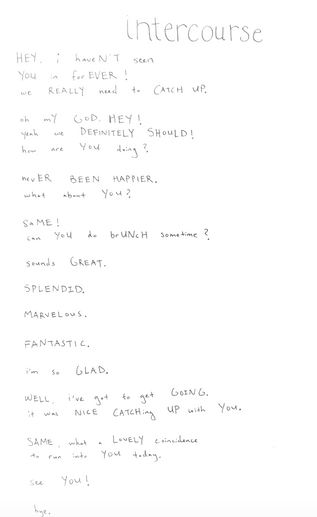 intercourse
HEY. i haveN'T seen
YOU in forEVER!
we REALLY need to CATCH UP.
oh mY GOD. HEY!
yeah we DEFINITELY SHOULD!
how are YOU doing?
nevER BEEN HAPPIER.
what about YOU?
SaME!
can YOU do brUNcH sometime?
sounds GREAT.
SPLENDID.
MARVELOUS.
FANTASTIC.
i'm so GLAD.
WELL, i've got to get GOING.
it was NICE CATCHing UP with YOU.
SAME. what a LOVELY coincidence
to run into YOU today.
see YOU!
bye.